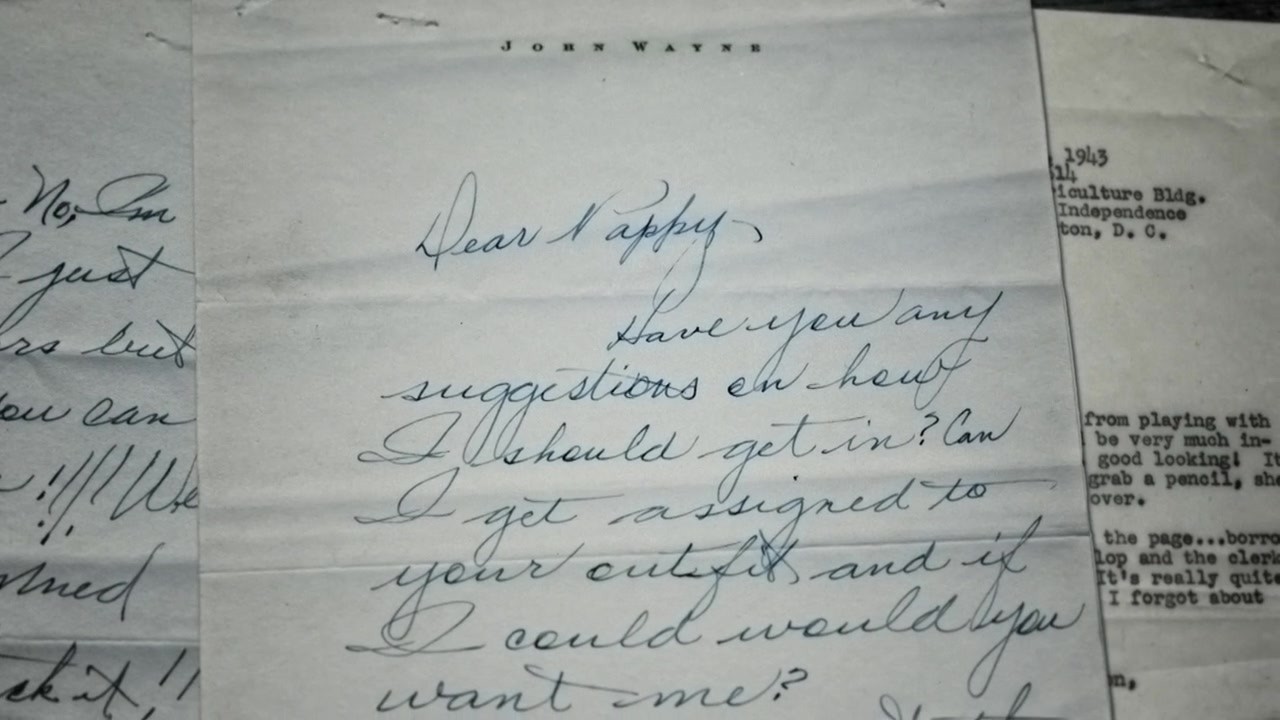 JOHN WAYNE
Dear Nappy,
Have you any
suggestions on how
I should get in? Can
I get assigned to
your outfit and if
I could would you
want me?
No, I'm
I just
rs but
ou can
!!!! We
ck it, !!
1943
14
iculture Bldg.
Independence
ton, D. C.
from playing with
be very much in-
good looking! It
grab a pencil, she
over.
the page...borro
lop and the clerk
It's really quite
I forgot about
n,